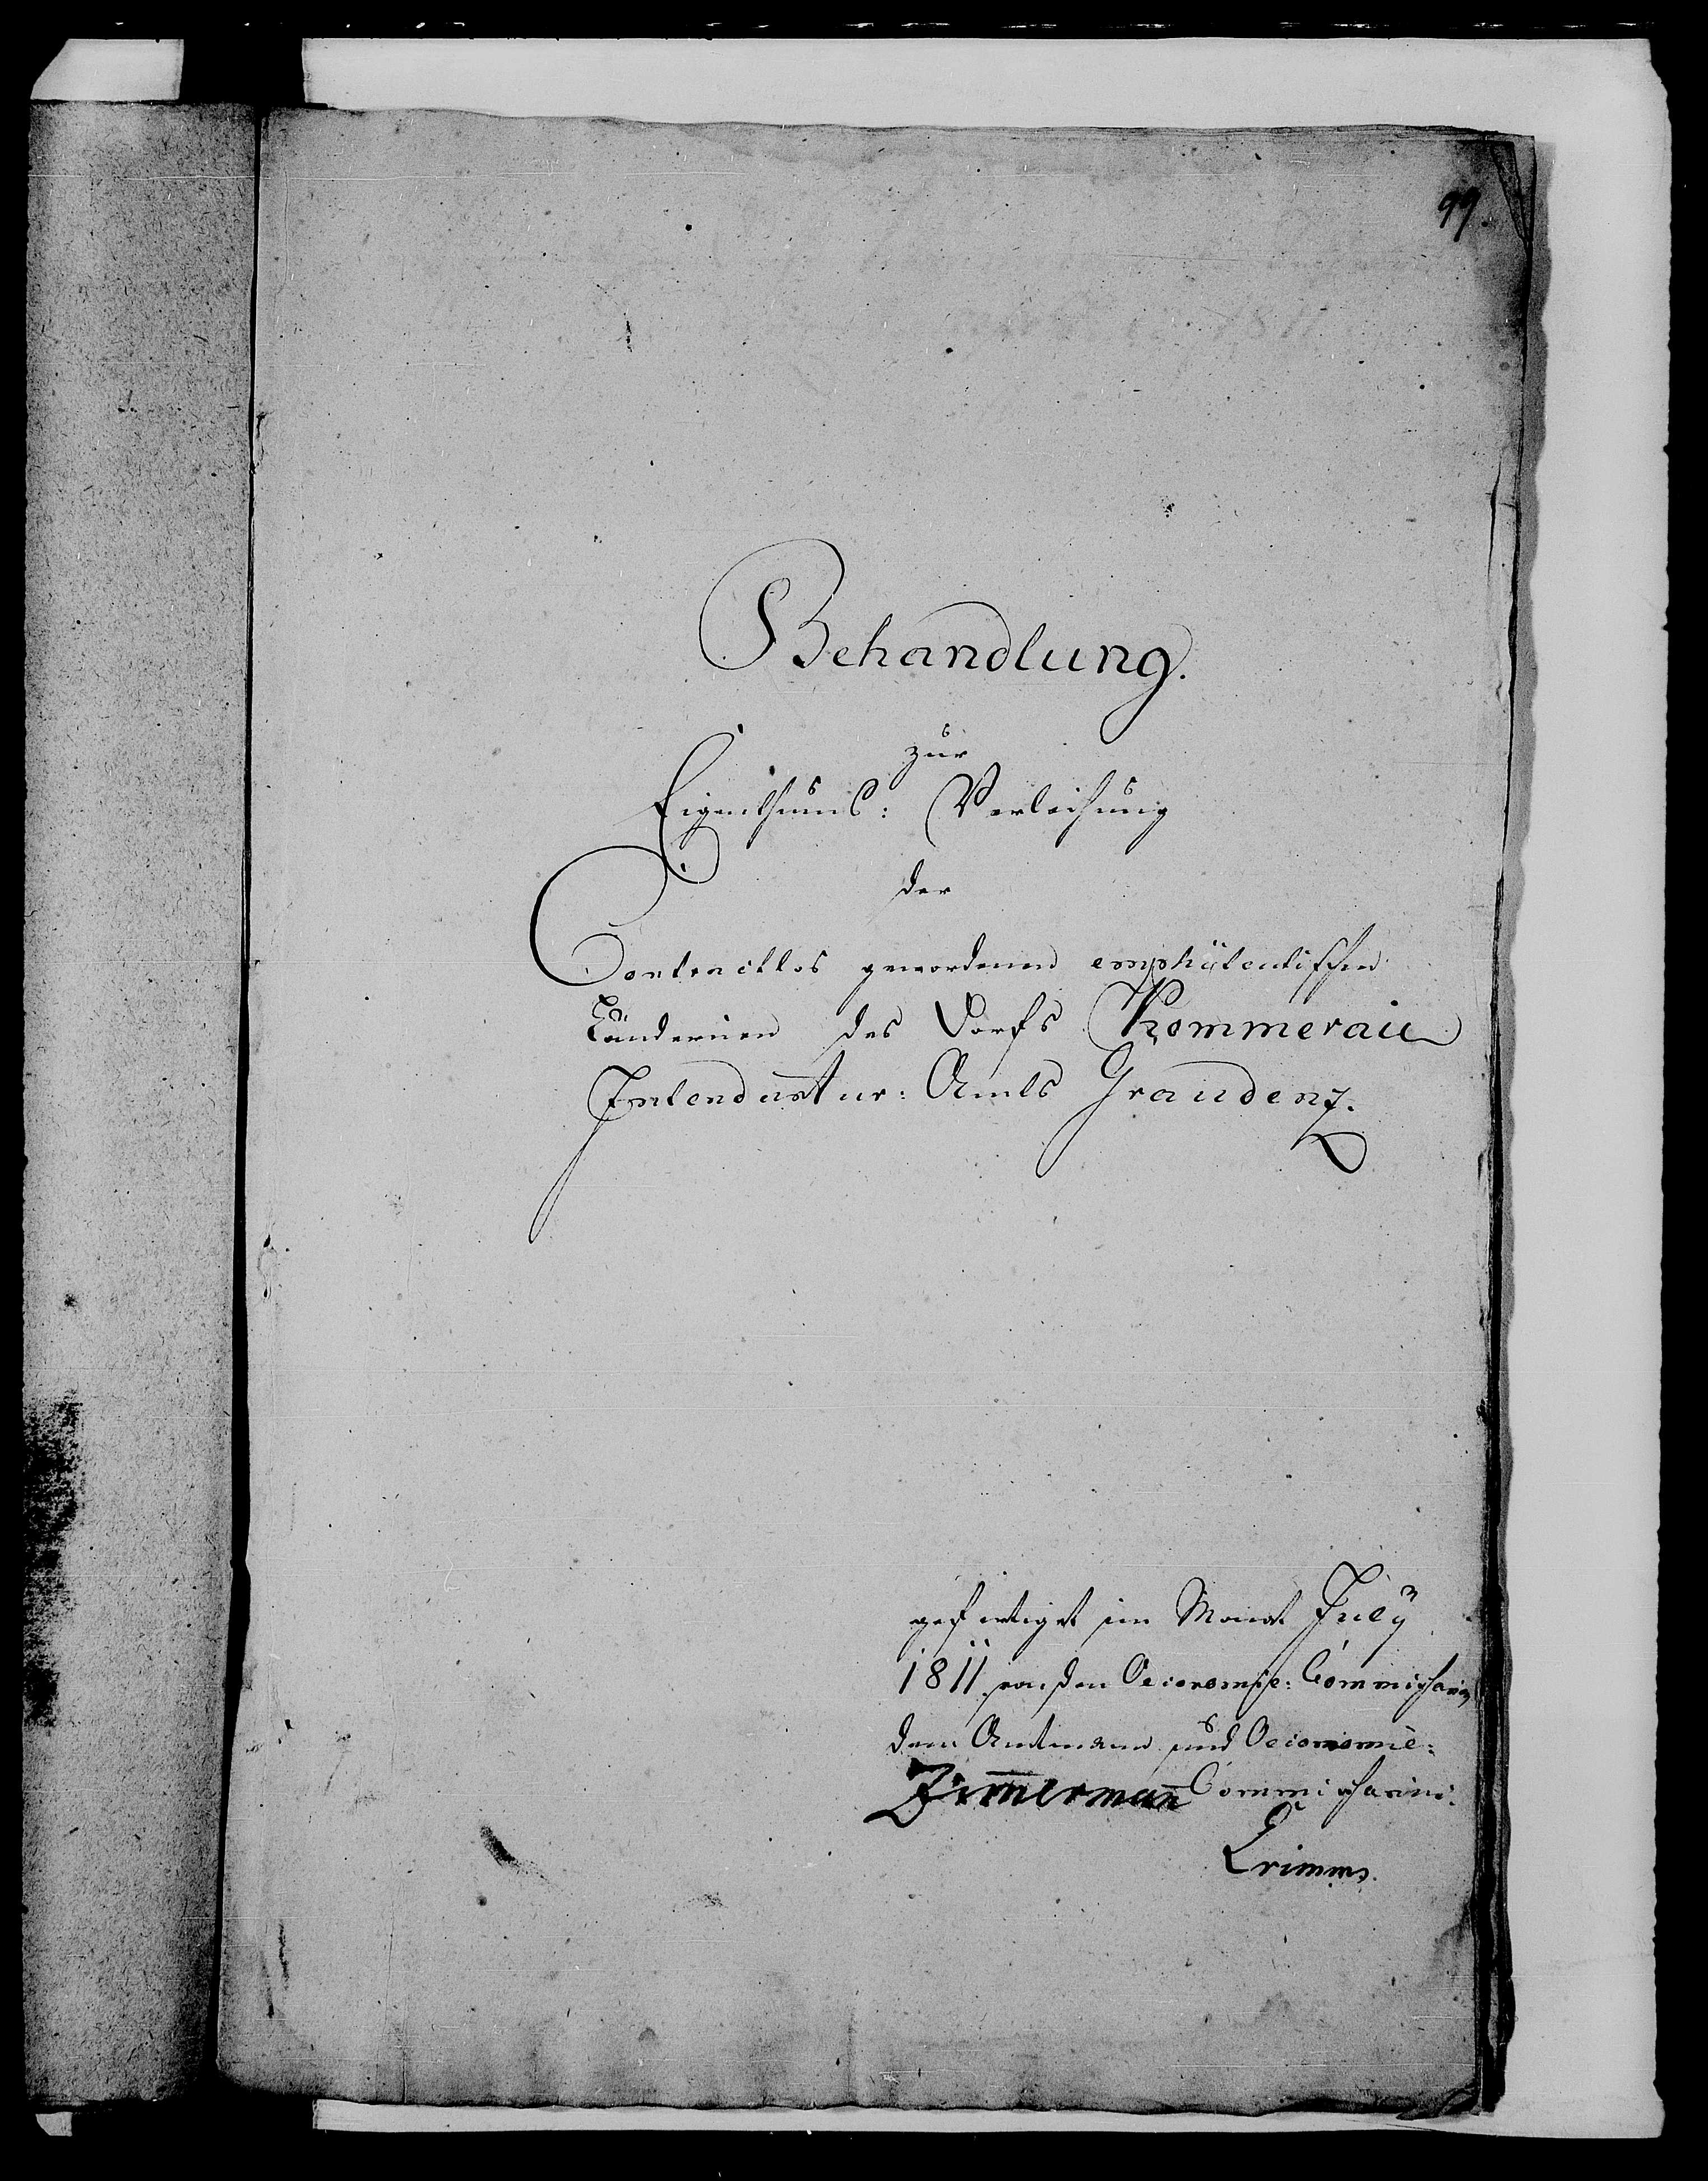 99.
Behandlung.
zur
Eigenthums: Verleihung
der
Contractlos gewordenen emphÿteutischen
Ländereien des Dorfs Kommerau
Intendantur: Amts Graudenz.
gefertiget im Monat July
1811 von den Oeconomie: Commissarien
dem Amtmann und Oeconomie:
Zim̅erman̅ Commissarius.